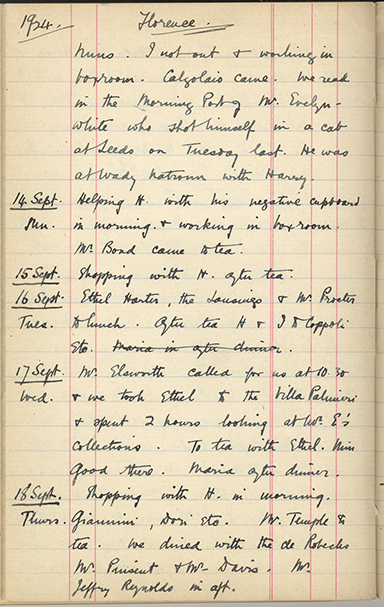 1924. Florence.
Nuns. I not out & working in
boxroom. Calzolaio came. We read
in the Morning Post of Mr. Evelyn-
White who shot himself in a cab
at Leeds on Tuesday last. He was
at Wady Natroun with Harry.
14 Sept. Helping H. with his negative cupboard
Sun. in morning & working in boxroom.
Mr. Bond came to tea.
15 Sept. Shopping with H. after tea.
16 Sept Ethel Harter, the Lansings & Mr. Procter
Tues. to lunch. After tea H & I to Coppoli
Etc. Maria in after dinner.
17 Sept. Mr. Elsworth called for us at 10.30
Wed. & we took Ethel to the Villa Palmieri
& spent 2 hours looking at Mr. E's
collections. To tea with Ethel. Miss
Good there. Maria after dinner.
18 Sept. Shopping with H. in morning.
Thurs. Giannini, Dori Etc. Mr. Temple to
tea. We dined with the de Robecks
Mr. Pinsent & Mr. Davis. Mr
Jeffry Reynolds in aft.